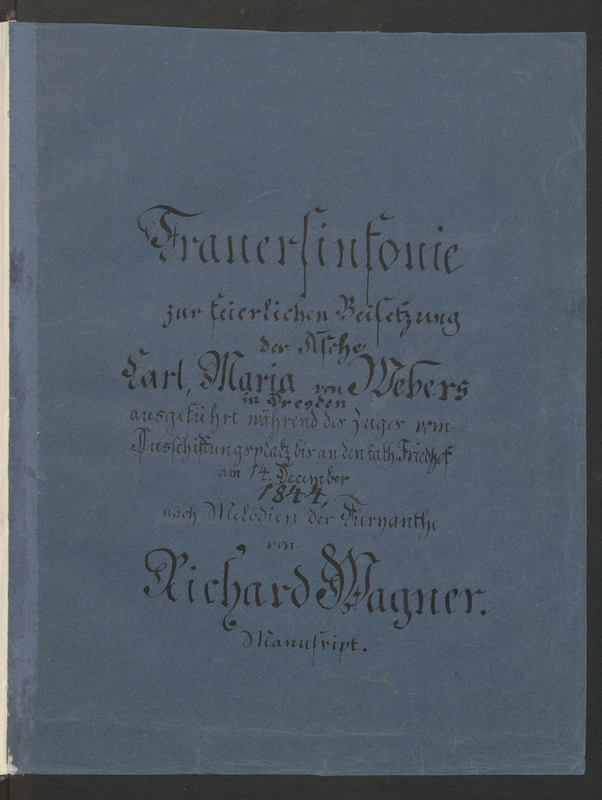 Trauersinfonie
zur feierlichen Beisetzung
der Asche
Carl, Maria von Webers
in Dresden
ausgeführt während des Zuges vom
Ausschiffungsplatz bis an den kath. Friedhof
am 14. December
1844,
nach Melodien der Euryanthe
von
Richard Wagner.
Manuskript.